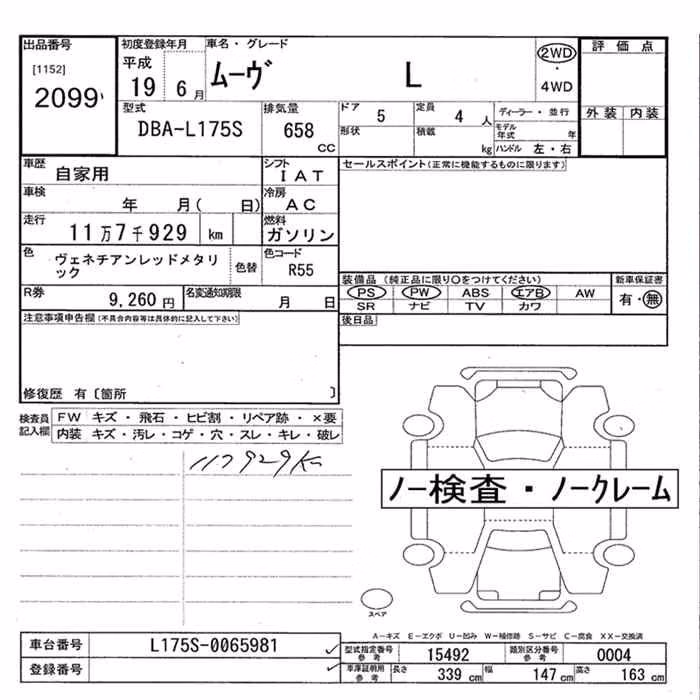 出品番号 初度登録年月 車名・グレード 2WD 評価点
[1152] 平成 ムーヴ L ・
2099 19 6月 4WD
型式 排気量 ドア 5 定員 4人 ディーラー・並行 外装 内装
DBA-L175S 658 cc 形状 積載 kg モデル年式 年
ハンドル 左・右
車歴 自家用 シフト IAT セールスポイント(正常に機能するものに限ります)
車検 年 月( 日) 冷房 AC
走行 11万7千929 km 燃料 ガソリン
色 ヴェネチアンレッドメタリック 色替 色コード R55
装備品(純正品に限り○をつけてください) 新車保証書
R券 9,260円 名変通知期限 月 日 PS PW ABS エアB AW 有・無
SR ナビ TV カワ
注意事項申告欄(不具合内容等は具体的に記入して下さい) 後日品
修復歴 有〔箇所 〕
検査員記入欄 FW キズ・飛石・ヒビ割・リペア跡・×要
内装 キズ・汚レ・コゲ・穴・スレ・キレ・破レ
117929K
ノー検査・ノークレーム
スペア
A-キズ E-エクボ U-凹み W-補修跡 S-サビ C-腐食 XX-交換済
車台番号 L175S-0065981 型式指定番号 参考 15492 類別区分番号 参考 0004
登録番号 車庫証明用 参考 長さ 339 cm 幅 147 cm 高さ 163 cm